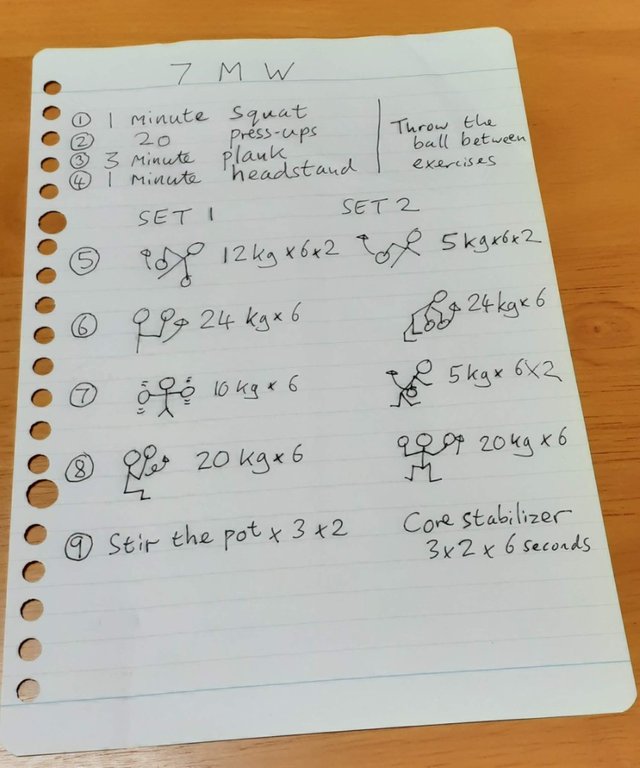 7 M W
① 1 Minute Squat
② 20 press-ups
③ 3 Minute plank
④ 1 Minute headstand
Throw the
ball between
exercises
SET 1 SET 2
⑤ 12kg x 6 x 2 5kg x 6 x 2
⑥ 24 kg x 6 24kg x 6
⑦ 10kg x 6 5kg x 6 X 2
⑧ 20kg x 6 20kg x 6
⑨ Stir the pot x 3 x 2
Core stabilizer
3 x 2 x 6 seconds